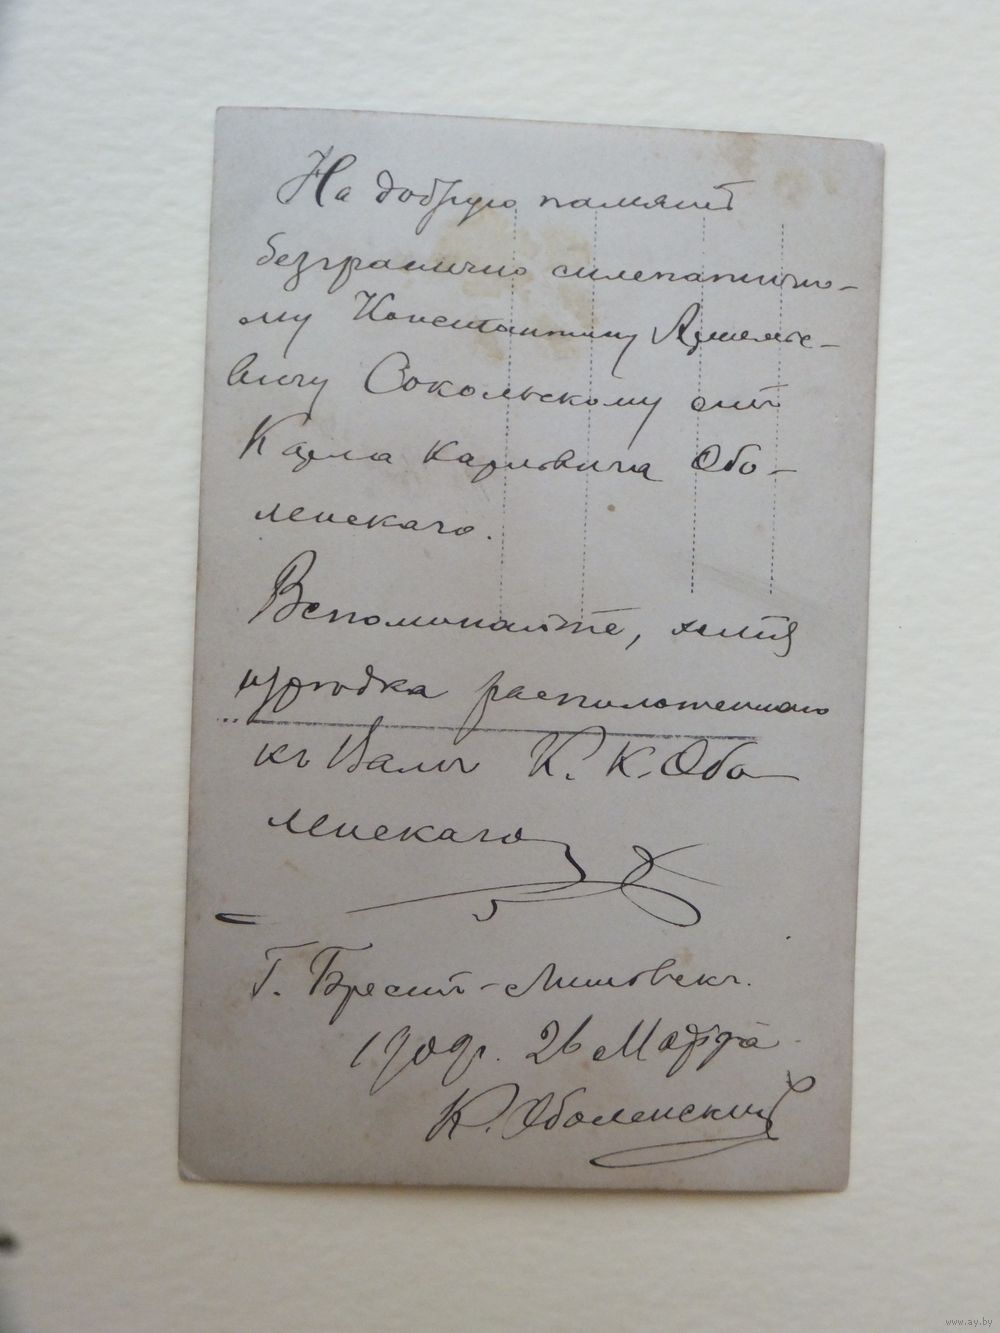 На добрую память
безгранично симпатично-
му Константину Артемье-
вичу Сокольскому отъ
Карла Карловича Обо-
ленскаго.
Вспоминайте, хотя
изрѣдка расположеннаго
къ Вамъ К. К. Обо-
ленскаго
Г. Брестъ-Литовскъ.
1909г. 26 Марта
К. Оболенскій
www.ay.by